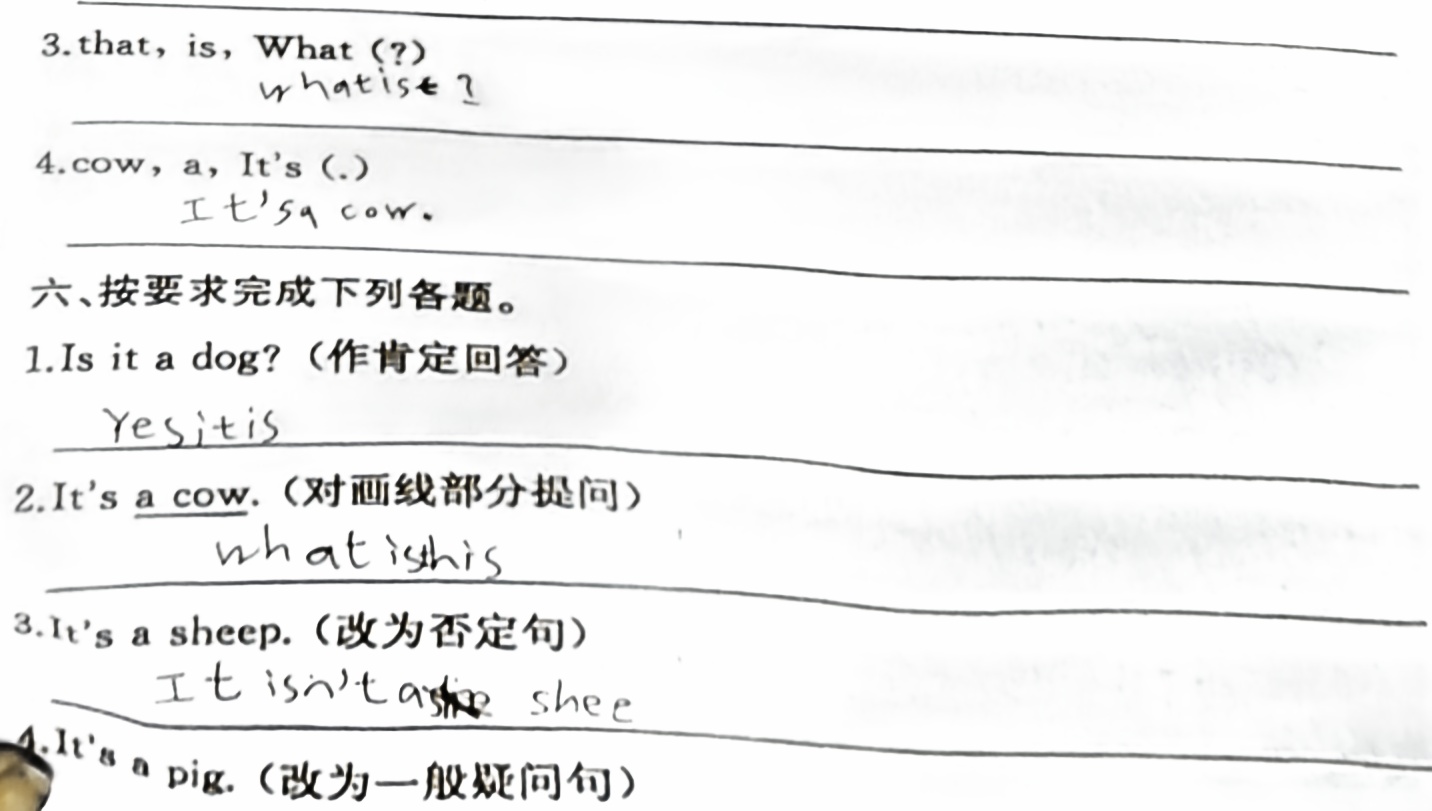 3.that, is, What (?)
whatist?
4.cow, a, It's (.)
It'sa cow.
六、按要求完成下列各题。
1.Is it a dog?（作肯定回答）
Yesitis
2.It's a cow.（对画线部分提问）
what isthis
3.It's a sheep.（改为否定句）
It isn't a shee
4.It's a pig.（改为一般疑问句）